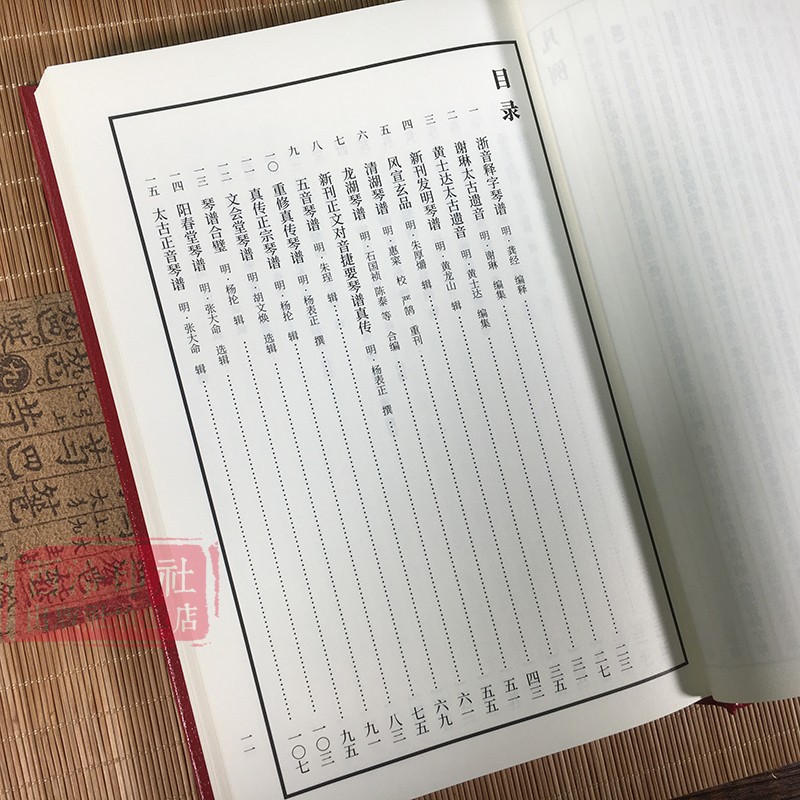 目录
一 浙音释字琴谱 明·龚经 编释
二 谢琳太古遗音 明·谢琳 编集 二七
三 黄士达太古遗音 明·黄士达 编集 三一
四 新刊发明琴谱 明·黄龙山 辑 三五
五 风宣玄品 明·朱厚爝 辑 四三
六 清湖琴谱 明· 校 严鹄 重刊 五一
七 龙湖琴谱 明·石国祯 陈泰 等 合编 五五
八 新刊正文对音捷要琴谱真传 明·杨表正 撰 六一
九 五音琴谱 明·朱珵 辑 六九
一〇 重修真传琴谱 明·杨表正 撰 七五
一一 真传正宗琴谱 明·杨抡 辑 八三
一二 文会堂琴谱 明·胡文焕 选辑 九一
一三 琴谱合璧 明·杨抡 辑 九五
一四 阳春堂琴谱 明·张大命 选辑 一〇三
一五 太古正音琴谱 明·张大命 辑 一〇七
一一
凡例
社
店